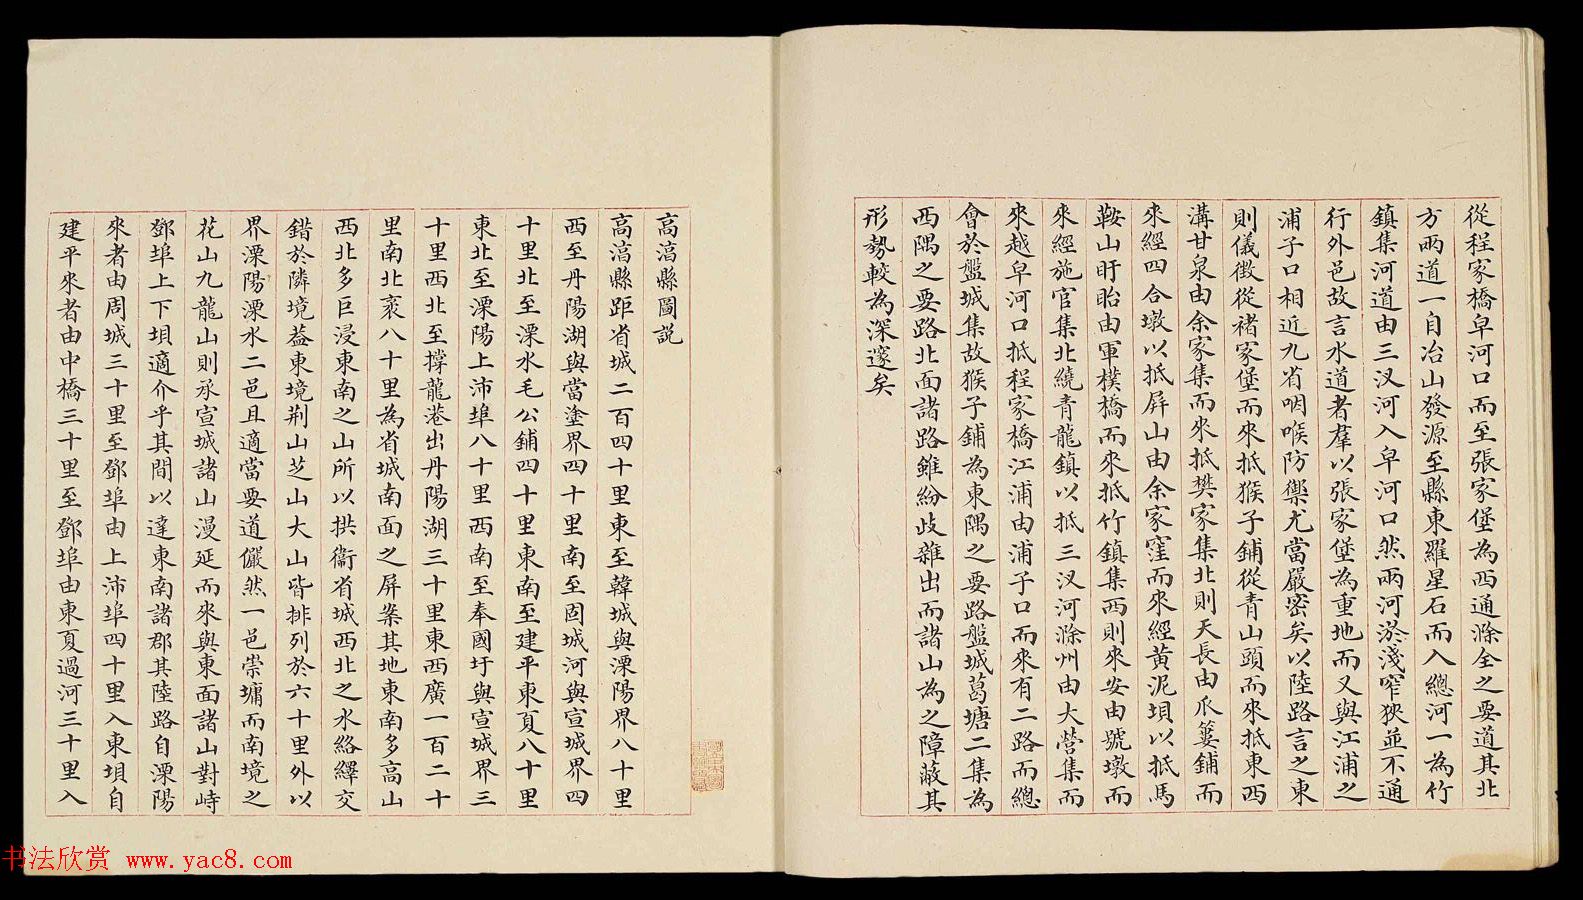 從程家橋皁河口而至張家堡為西通滁全之要道其北
方兩道一自冶山發源至縣東羅星石而入總河一為竹
鎮集河道由三汊河入皁河口然兩河淤淺窄狹並不通
行外邑故言水道者羣以張家堡為重地而又與江浦之
浦子口相近九省咽喉防禦尤當嚴密矣以陸路言之東
則儀徵從褚家堡而來抵猴子鋪從青山頭而來抵東西
溝甘泉由余家集而來抵樊家集北則天長由爪蔞鋪而
來經四合墩以抵屏山由余家窪而來經黃泥垻以抵馬
鞍山盱眙由軍樸橋而來抵竹鎮集西則來安由號墩而
來經施官集北繞青龍鎮以抵三汊河滁州由大營集而
來越皁河口抵程家橋江浦由浦子口而來有二路而總
會於盤城集故猴子鋪為東隅之要路盤城葛塘二集為
西隅之要路北面諸路雖紛歧雜出而諸山為之障蔽其
形勢較為深邃矣
高淳縣圖説
高淳縣距省城二百四十里東至韓城與溧陽界八十里
西至丹陽湖與當塗界四十里南至固城河與宣城界四
十里北至溧水毛公鋪四十里東南至建平東夏八十里
東北至溧陽上沛埠八十里西南至奉國圩與宣城界三
十里西北至撐龍港出丹陽湖三十里東西廣一百二十
里南北袤八十里為省城南面之屏案其地東南多高山
西北多巨浸東南之山所以拱衞省城西北之水絡繹交
錯於隣境葢東境荆山芝山大山皆排列於六十里外以
界溧陽溧水二邑且適當要道儼然一邑崇墉而南境之
花山九龍山則承宣城諸山漫延而來與東面諸山對峙
鄧埠上下垻適介乎其間以達東南諸郡其陸路自溧陽
來者由周城三十里至鄧埠由上沛埠四十里入東垻自
建平來者由中橋三十里至鄧埠由東夏過河三十里入
书法欣赏 www.yac8.com